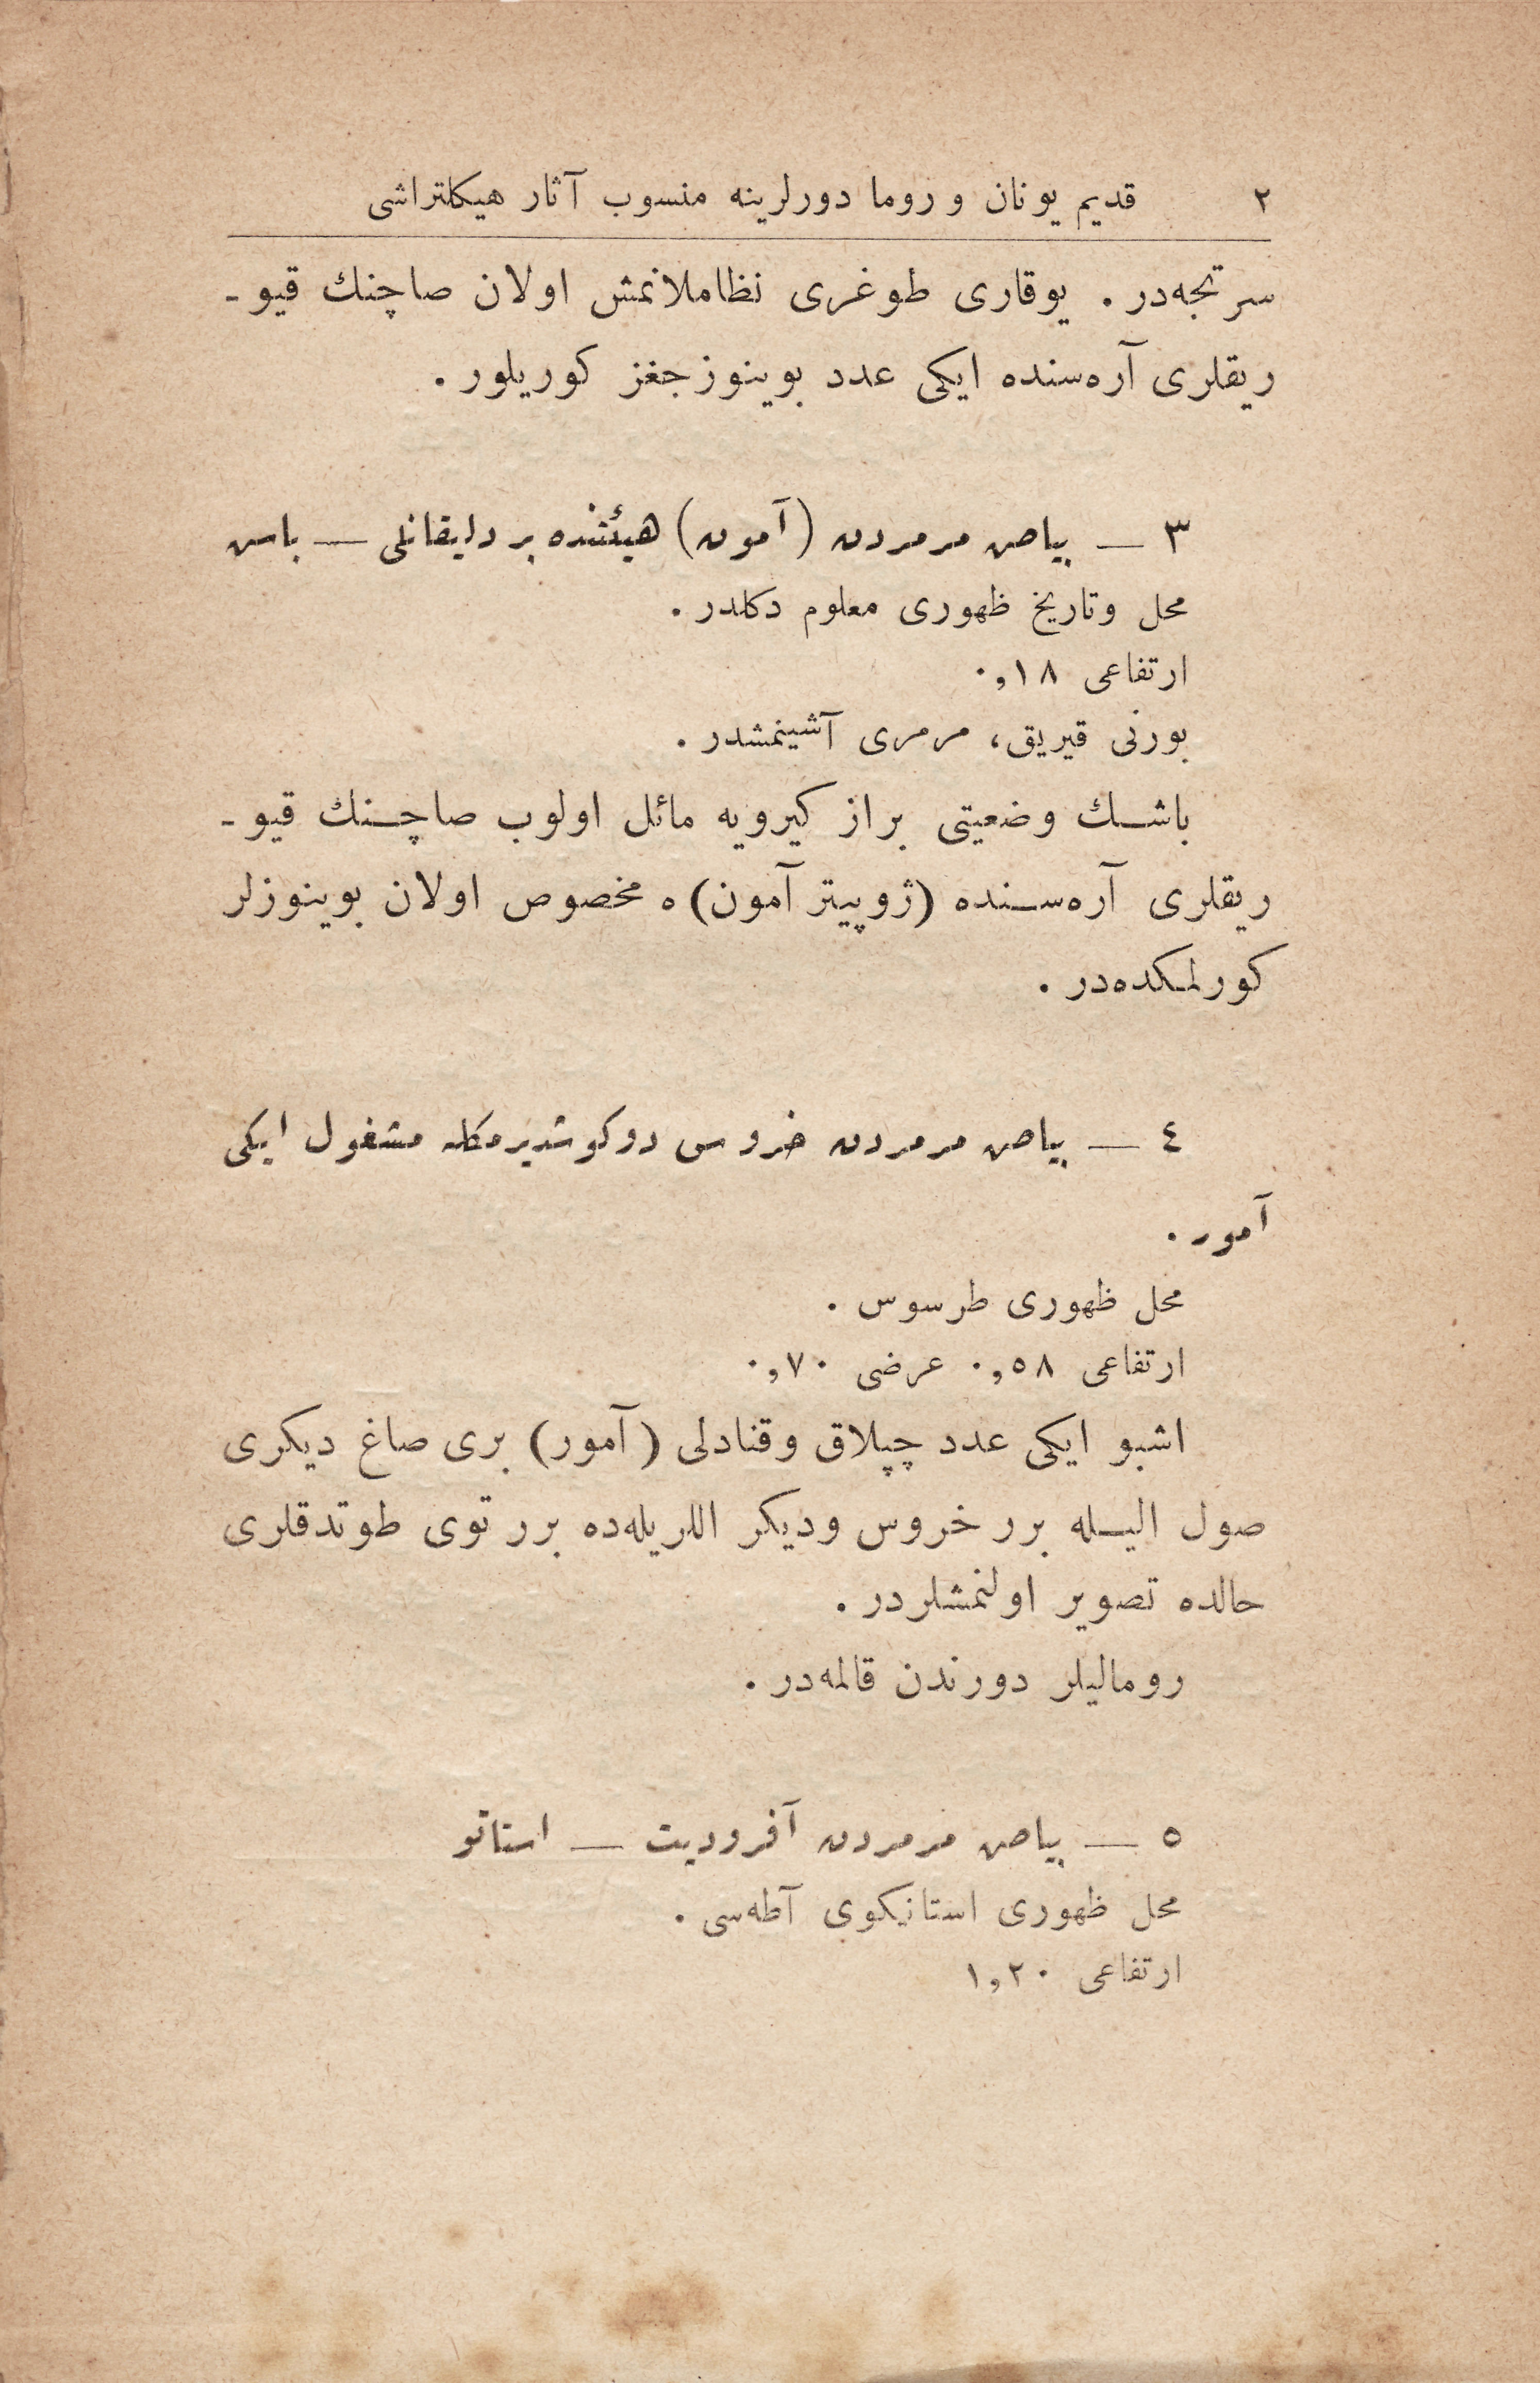 ٢ قديم يونان و روما دورلرينه منسوب آثار هيكلتراشى
سرتجه‌در . يوقارى طوغرى نظاملانمش اولان صاچنك قيو ـ
ريقلرى آره‌سنده ايكى عدد بوينوزجغز كوريلور .
٣ — بياض مرمردن (آمون) هيئتنده بر دليقانلى — باش
محل وتاريخ ظهورى معلوم دكلدر .
ارتفاعى ٠,١٨
بورنى قيريق، مرمرى آشينمشدر .
باشـك وضعيتى براز كيرويه مائل اولوب صاچـنك قيو ـ
ريقلرى آره‌سـنده (ژوپيتر آمون)ه مخصوص اولان بوينوزلر
كورلمكده‌در .
٤ — بياض مرمردن خروس دوكوشديرمكله مشغول ايكى
آمور .
محل ظهورى طرسوس .
ارتفاعى ٠,٥٨ عرضى ٠,٧٠
اشبو ايكى عدد چپلاق وقنادلى (آمور) برى صاغ ديكرى
صول اليـله برر خروس وديكر اللريله‌ده برر توى طوتدقلرى
حالده تصوير اولنمشلردر .
روماليلر دورندن قالمه‌در .
٥ — بياض مرمردن آفروديت — استاتو
محل ظهورى استانيكوى آطه‌سى .
ارتفاعى ١,٢٠